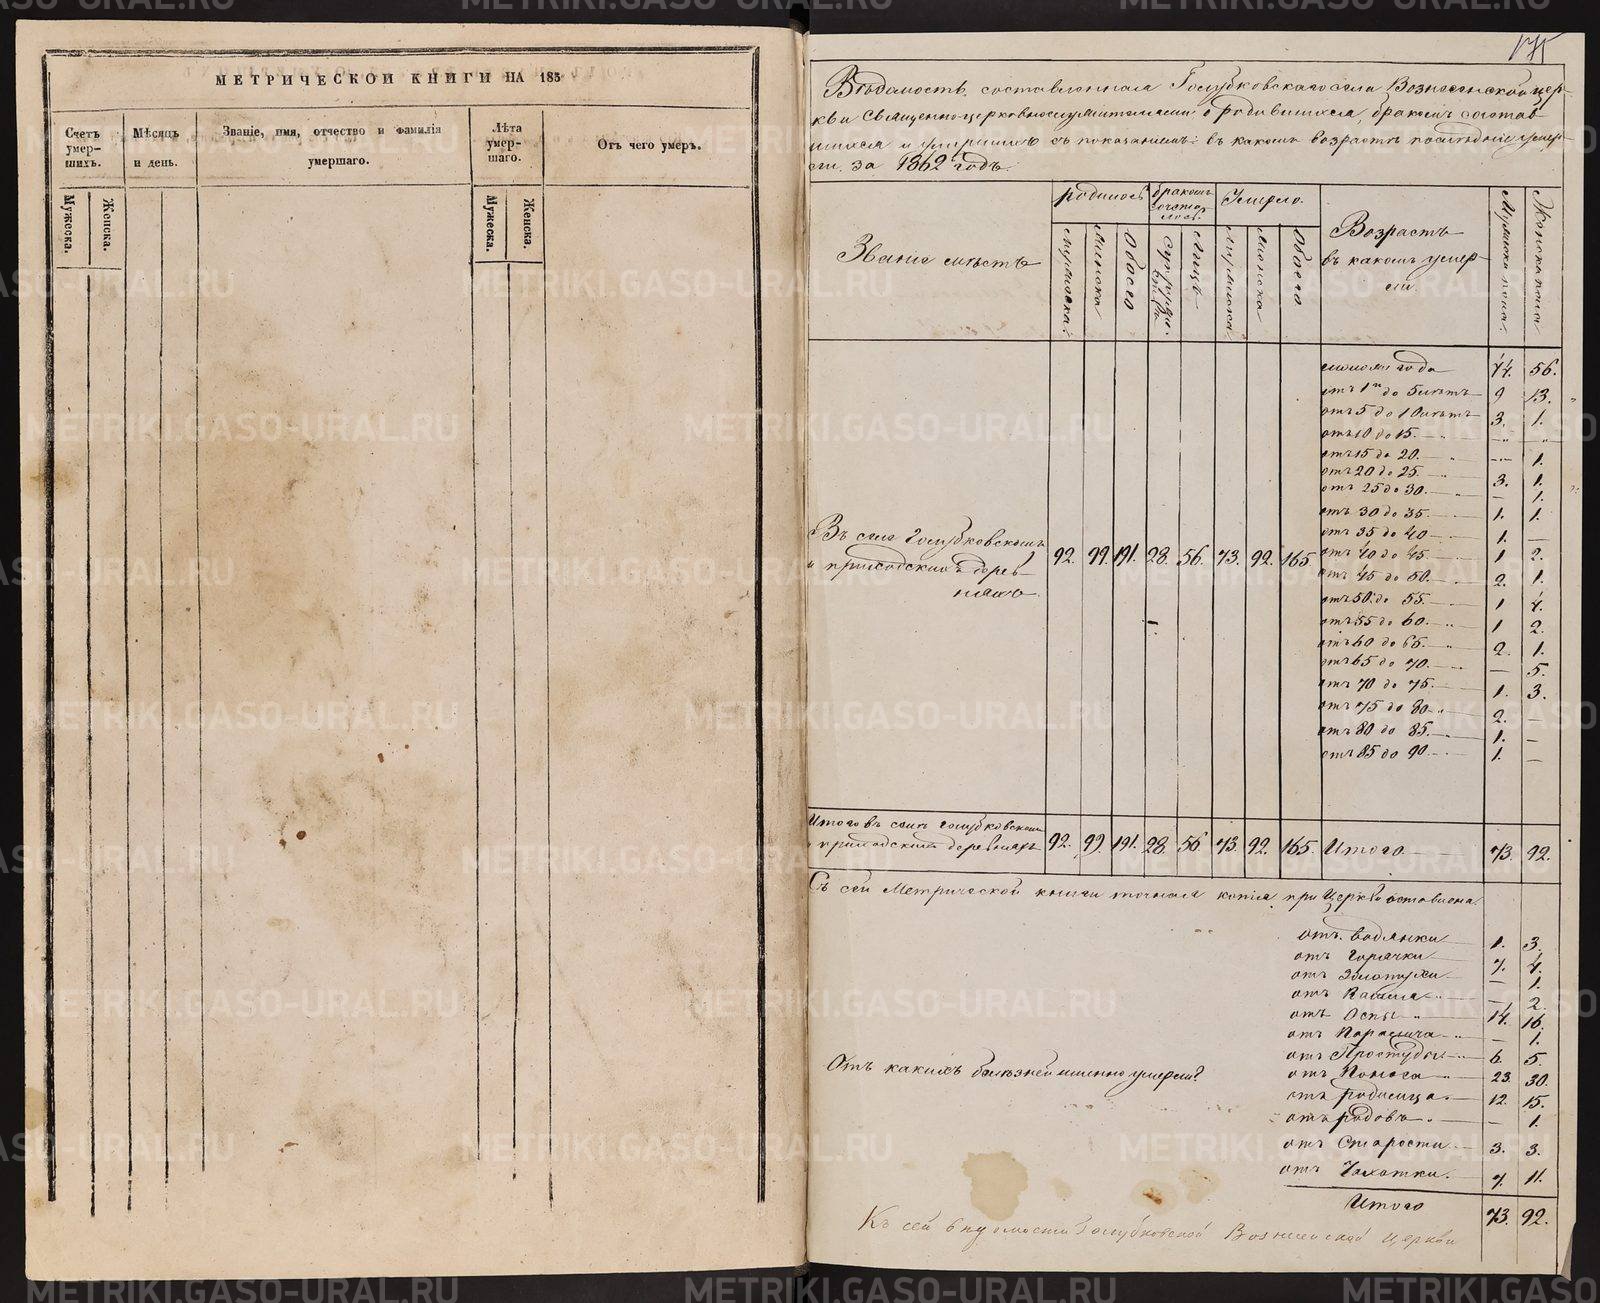 МЕТРИЧЕСКОЙ КНИГИ НА 185
Счетъ умер-шихъ.
Мѣсяцъ и день.
Званіе, имя, отчество и фамилія умершаго.
Лѣта умер-шаго.
Отъ чего умеръ.
Мужеска.
Женска.
Мужеска.
Женска.
175
Вѣдомость, составленная Голубковскаго села Вознесенской цер-
кви Священноцерковнослужителями о родившихся, бракомъ сочетав
шихся и умершихъ съ показаніемъ: въ какомъ возрастѣ послѣдніе умер-
ли, за 1862 годъ.
Званіе мѣстъ
родилось
бракомъ сочета-лось.
Умерло.
Возрастъ въ какомъ умер-ли.
Мужска пола.
Женска пола
мужеска.
женска
Обоего
супруже-ства
Лицъ
мужеска
женска
Обоего
менѣе года 44. 56.
отъ 1го до 5 лѣтъ 9 13.
отъ 5 до 10 лѣтъ 3. 1.
отъ 10 до 15. — „ —„— —„
отъ 15 до 20. — „ —„— 1.
отъ 20 до 25. — „ 3. 1.
отъ 25 до 30. — „ — 1.
отъ 30 до 35. — 1. 1.
отъ 35 до 40 — 1. —
отъ 40 до 45 — 1 2.
отъ 45 до 50. — 2. 1.
отъ 50. до 55. — 1 4.
отъ 55 до 60. — „ 1 2.
отъ 60 до 65. — „ 2. 1.
отъ 65 до 70. — — 5.
отъ 70 до 75. — 1. 3.
отъ 75 до 80 — „ 2. —
отъ 80 до 85. — 1. —
отъ 85 до 90. — 1. —
Въ селѣ Голубковскомъ
и приходскихъ дерев-
няхъ.
92. 99. 191. 28. 56. 73. 92. 165.
Итого въ селѣ Голубковскомъ
и приходскихъ деревняхъ 92. 99. 191. 28. 56. 73. 92. 165. Итого 73. 92.
Съ сей Метрической книги точная копія при Церкви оставлена.
Отъ какихъ болѣзней именно умерли?
отъ водянки 1. 3.
отъ горячки 7. 4.
отъ Золотухи — 1.
отъ Кашля — 2.
отъ Оспы 14. 16.
отъ Паралича — 1.
отъ Простуды 6. 5.
отъ Поноса 23. 30.
отъ родимца. 12. 15.
отъ родовъ. — 1.
отъ Старости 3. 3.
отъ Чахотки. 7. 11.
Итого 73. 92.
Къ сей вѣдомости Голубковской Вознесенской церкви
METRIKI.GASO-URAL.RU